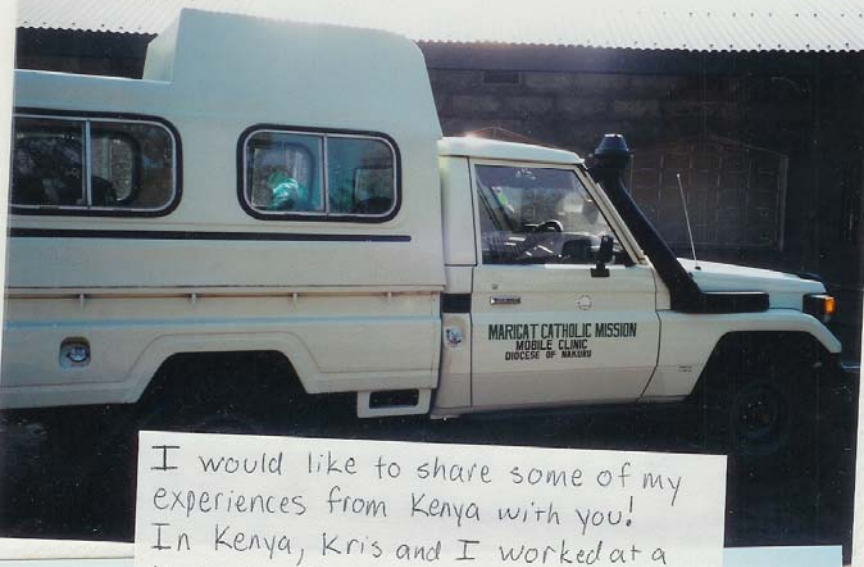 MARIGAT CATHOLIC MISSION
MOBILE CLINIC
DIOCESE OF NAKURU
I would like to share some of my
experiences from Kenya with you!
In Kenya, Kris and I worked at a